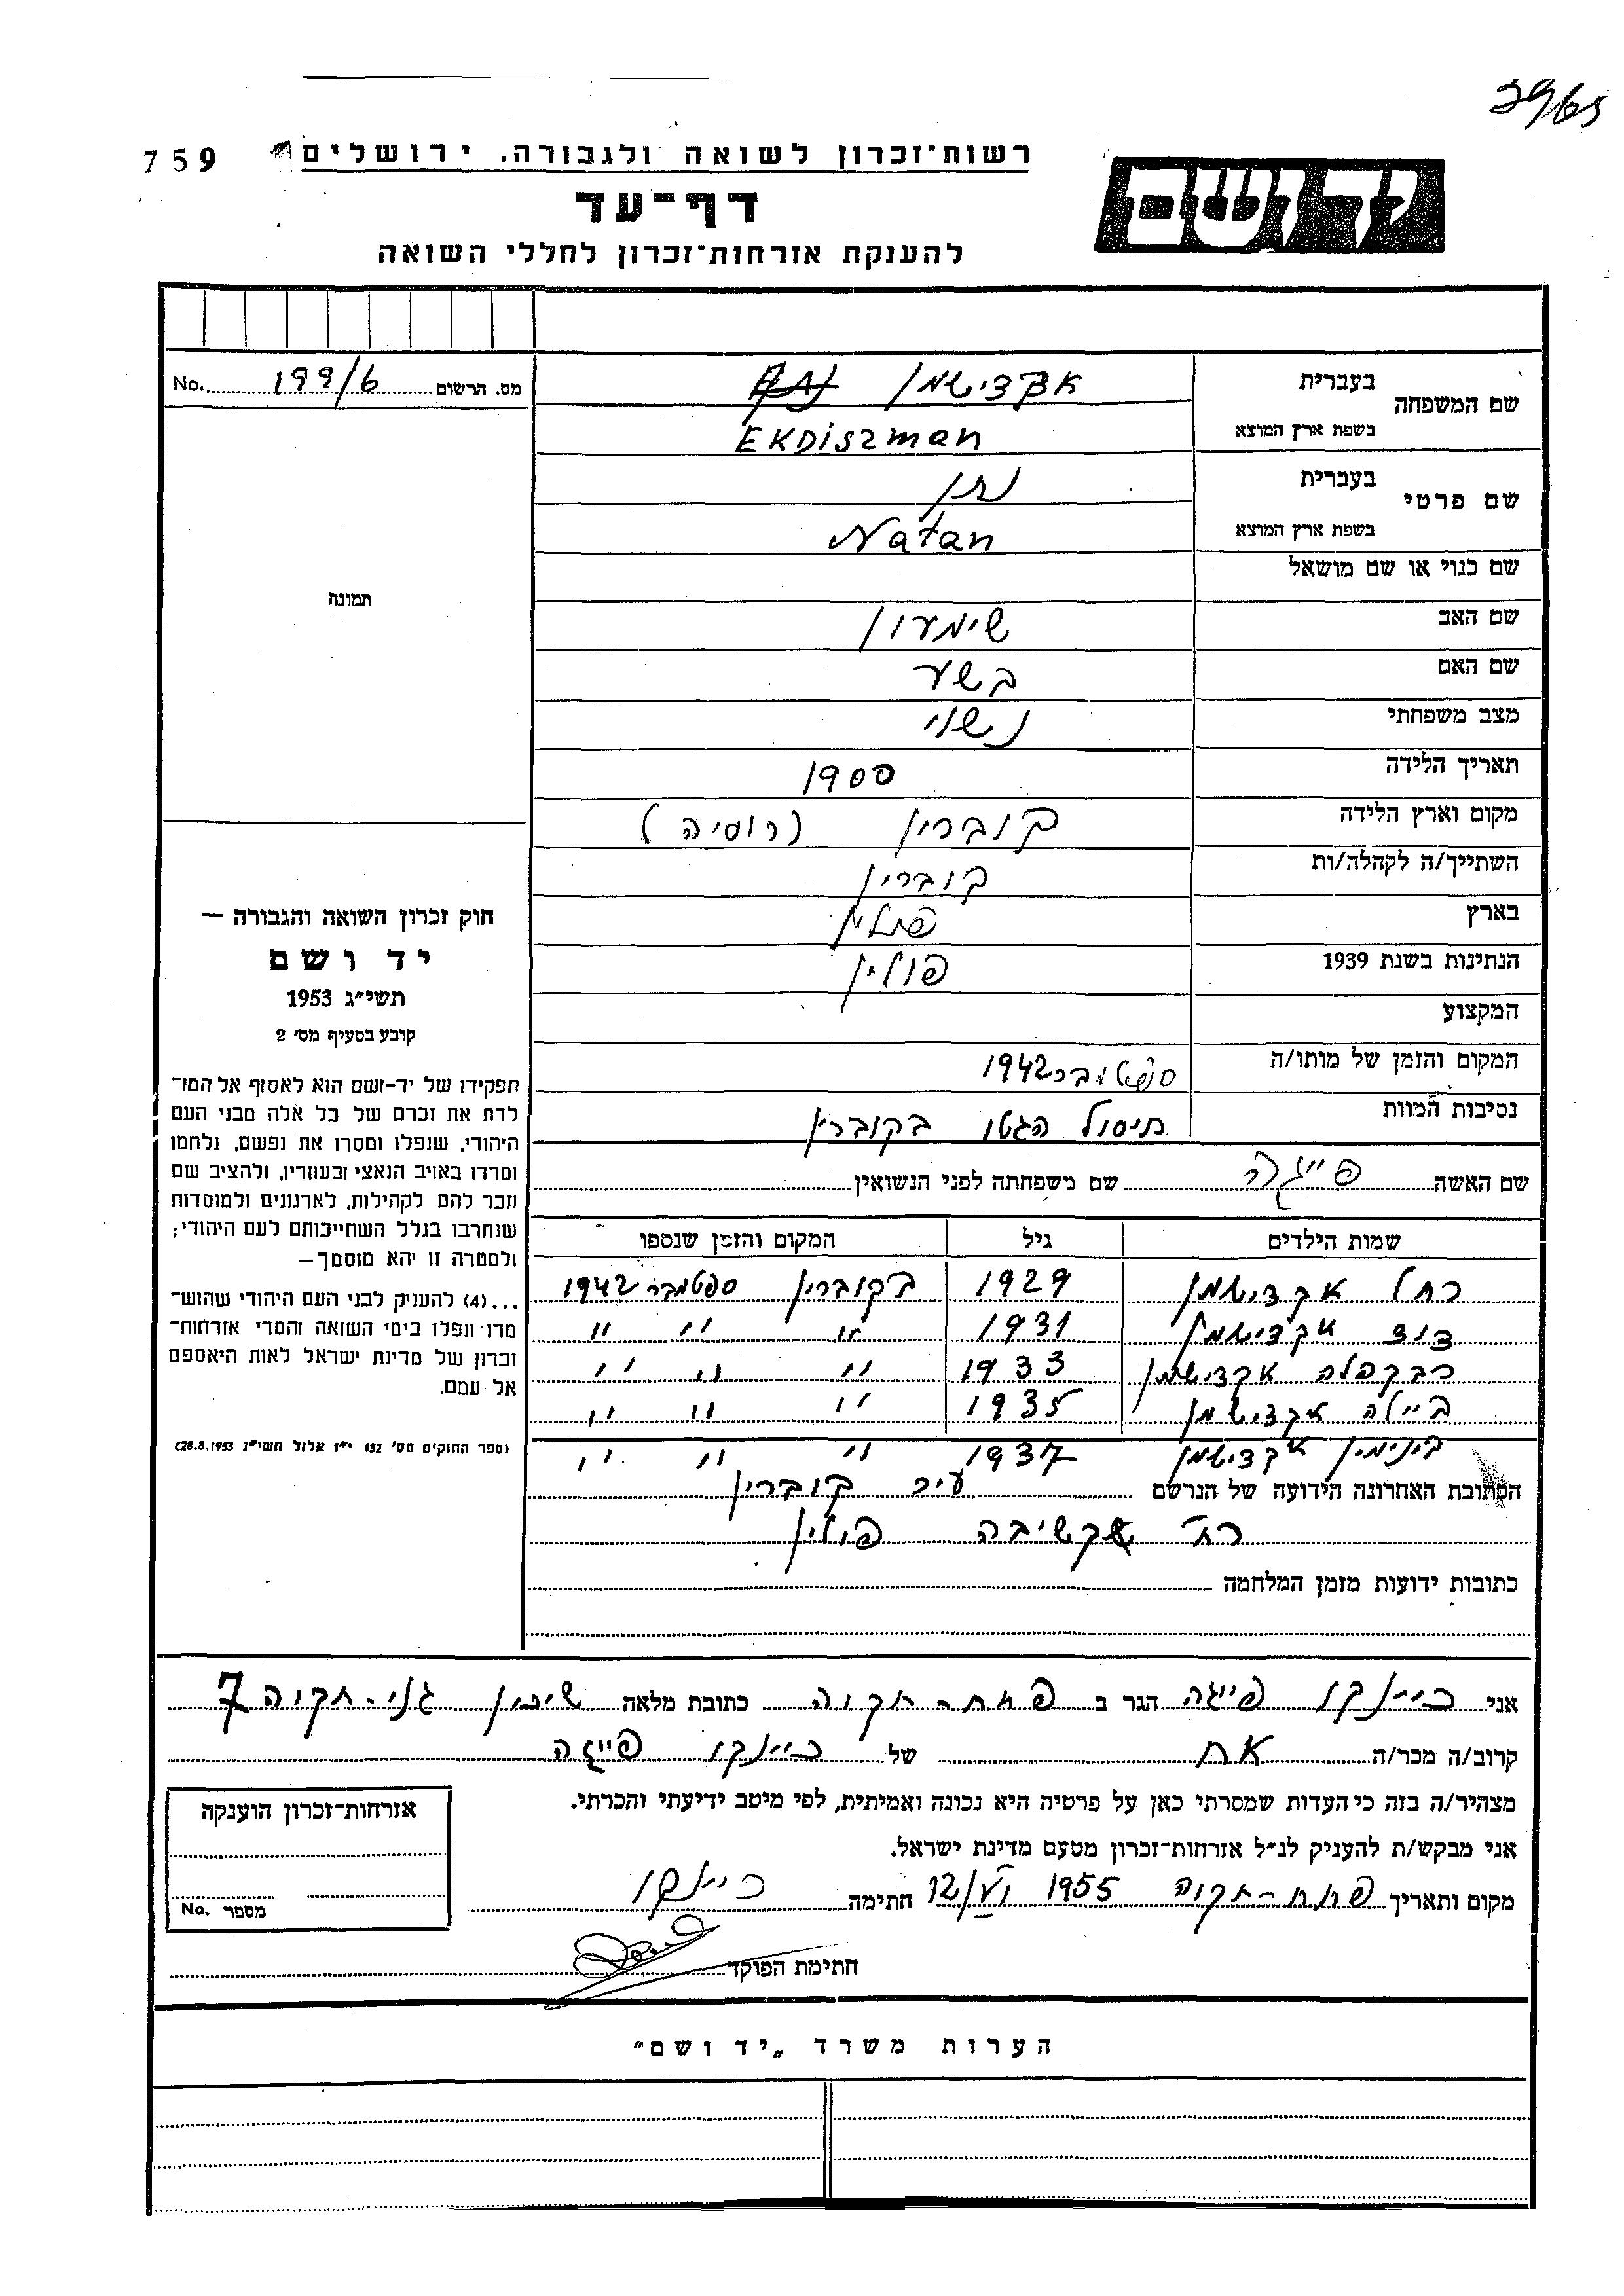 3965
759
רשות־זכרון לשואה ולגבורה, ירושלים
יד ושם
דף־עד
להענקת אזרחות־זכרון לחללי השואה
מס. הרשום 199/6 No.
שם המשפחה
בעברית אקדישמן
בשפת ארץ המוצא EKDiszman
שם פרטי
בעברית נתן
בשפת ארץ המוצא Natan
שם כנוי או שם מושאל
תמונה
שם האב שימעון
שם האם בשע
מצב משפחתי נשוי
תאריך הלידה 1900
מקום וארץ הלידה קוברין (רוסיה)
השתייך/ה לקהלה/ות קוברין
בארץ פולין
הנתינות בשנת 1939 פולין
המקצוע
המקום והזמן של מותו/ה ספטמבר 1942
נסיבות המוות חיסול הגטו בקוברין
שם האשה פייגה שם משפחתה לפני הנשואין
שמות הילדים גיל המקום והזמן שנספו
רחל אקדישמן 1929 בקוברין ספטמבר 1942
דוד אקדישמן 1931 " " "
רבקהלה אקדישמן 1933 " " "
ביילה אקדישמן 1935 " " "
בינימין אקדישמן 1937 " " "
הכתובת האחרונה הידועה של הנרשם עיר קוברין
רח' פולין
כתובות ידועות מזמן המלחמה
חוק זכרון השואה והגבורה —
יד ושם
תשי״ג 1953
קובע בסעיף מס׳ 2
תפקידו של יד־ושם הוא לאסוף אל המו־
לדת את זכרם של כל אלה מבני העם
היהודי, שנפלו ומסרו את נפשם, נלחמו
ומרדו באויב הנאצי ובעוזריו, ולהציב שם
וזכר להם לקהילות, לארגונים ולמוסדות
שנחרבו בגלל השתייכותם לעם היהודי;
ולמטרה זו יהא מוסמך—
...(4) להעניק לבני העם היהודי שהוש־
מדו ונפלו בימי השואה והמרי אזרחות־
זכרון של מדינת ישראל לאות היאספם
אל עמם.
(ספר החוקים מס׳ 132 י״ז אלול תשי״ג 28.8.1953)
אני פייגה הגר ב פתח-תקוה כתובת מלאה שיכון גני-תקוה 7
קרוב/ה מכר/ה אח של פייגה
מצהיר/ה בזה כי העדות שמסרתי כאן על פרטיה היא נכונה ואמיתית, לפי מיטב ידיעתי והכרתי.
אני מבקש/ת להעניק לנ״ל אזרחות־זכרון מטעם מדינת ישראל.
מקום ותאריך פתח-תקוה 1955 חתימה
חתימת הפוקד
אזרחות־זכרון הוענקה
מספר No.
הערות משרד „יד ושם״